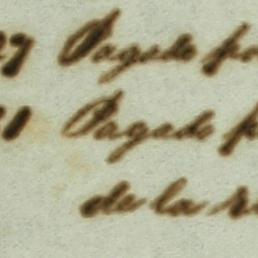 27 Pagado po
21 Pagado p
de la r